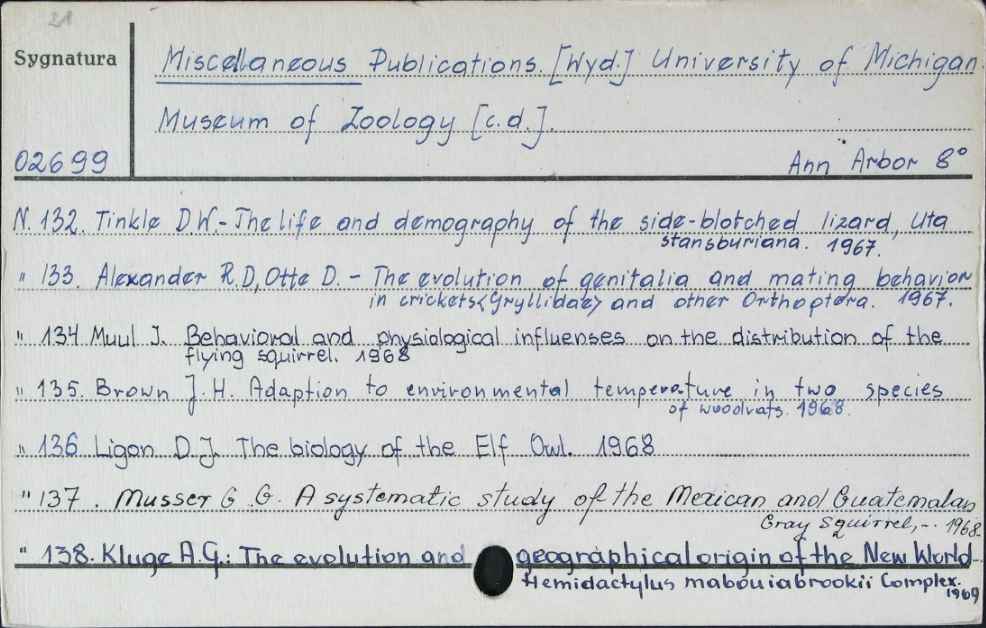 21
Sygnatura
Miscellaneous Publications. [Wyd.] University of Michigan
Museum of Zoology [c.d.].
02699
Ann Arbor 8°
N. 132. Tinkle D W.- The life and demography of the side-blotched lizard, Uta
stansburiana. 1967.
" 133. Alexander R.D, Otte D. - The evolution of genitalia and mating behavior
in crickets<Gryllidae> and other Orthoptera. 1967.
" 134 Muul J. Behavioral and physiological influenses on the distribution of the
flying squirrel. 1968
" 135. Brown J. H. Adaption to environmental temperature in two species
of woodrats. 1968.
" 136 Ligon D.J. The biology of the Elf Owl. 1968
" 137 . Musser G G. A systematic study of the Mexican and Guatemalan
Gray Squirrel,-. 1968
" 138. Kluge A.G.: The evolution and geographical origin of the New World
Hemidactylus mabouiabrookii Complex. 1969